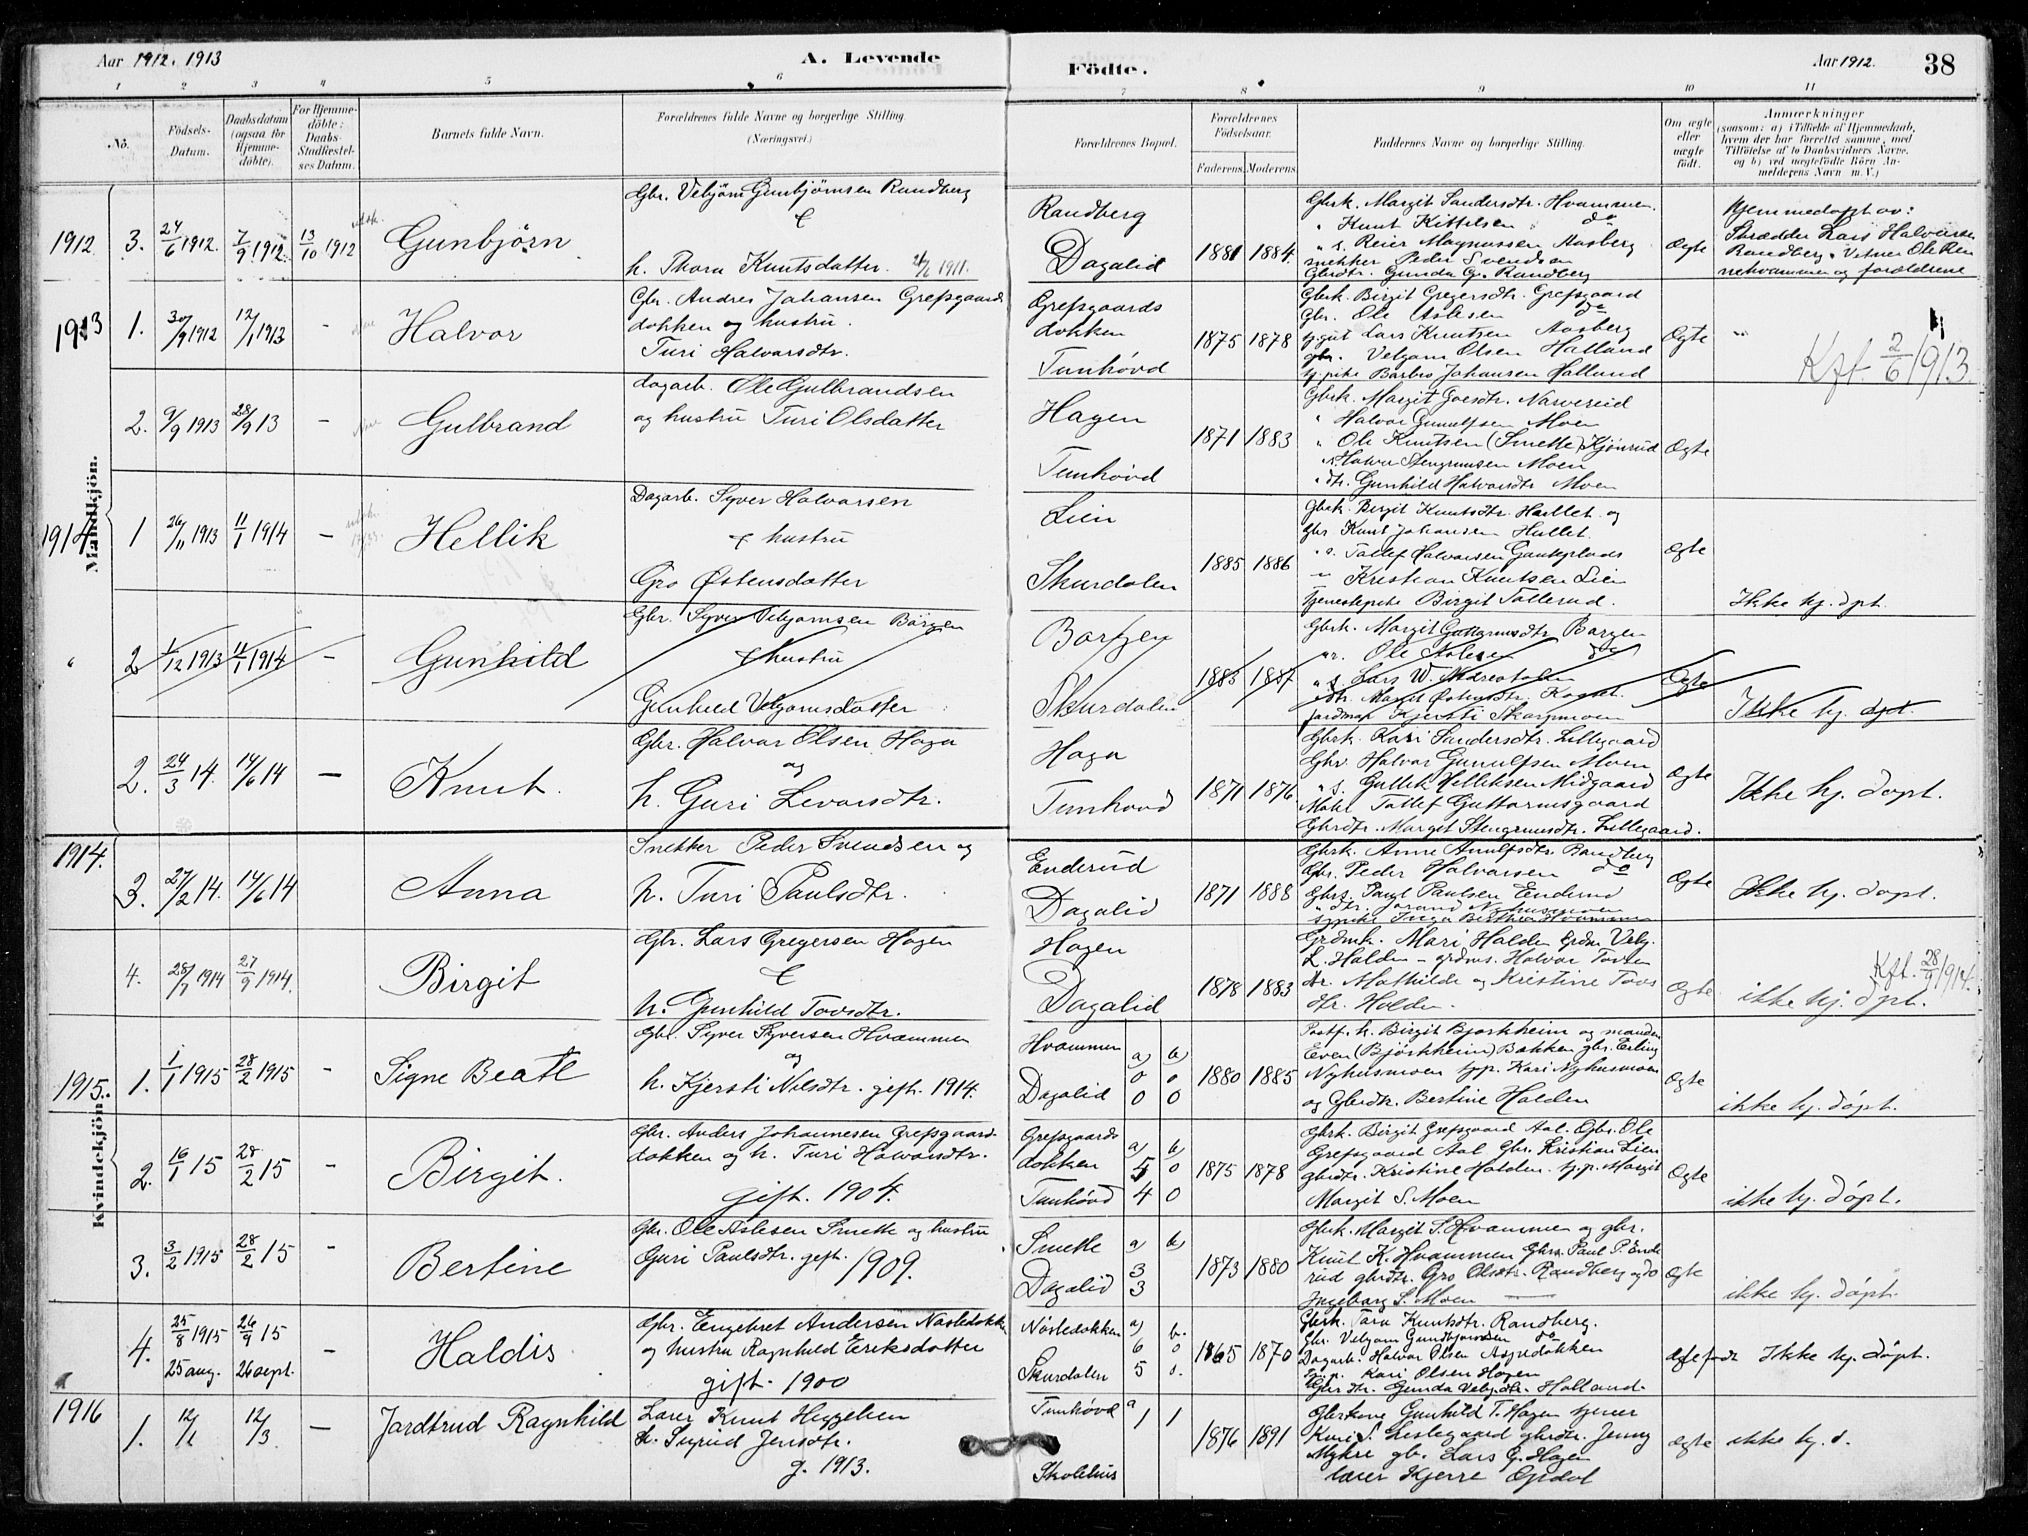 Aar 1912. 1913
A. Levende
Födte.
Aar 1912.
38
1 2 3 4 5 6 7 8 9 10 11
No.
Födsels-Datum.
Daabsdatum (ogsaa for Hjemmedöbte).
For Hjemmedöbte: Daabs-Stadfæstelses Datum.
Barnets fulde Navn.
Forældrenes fulde Navne og borgerlige Stilling. (Næringsvei.)
Forældrenes Bopæl.
Forældrenes Födselsaar. Faderens. Moderens.
Faddernes Navne og borgerlige Stilling.
Om ægte eller uægte födt.
Anmærkninger (saasom: a) i Tilfælde af Hjemmedaab, hvem der har forrettet samme, med Tilföielse af to Daabsvidners Navne, og b) ved uægtefödte Börn Anmelderens Navn m. V.)
Mandkjön.
1912 3. 24/6 1912. 7/9 1912 13/10 1912 Gunbjørn
Gbr. Vebjørn Gunbjørnsen Randberg
&
h. Thora Knutsdatter. 1911.
Randberg
Dagalid
1881 1884.
Gbrk. Margit Sandersdtr. Hvammen.
" Knut Kittelsen do
" s. Reier Magnussen Aasberg
snekker Peder Svendsen
Gbrdtr. Gunda G. Randberg
Ægte
Hjemmedøpt av:
Skrædder Lars Halvorsen
Randberg. Vitner Ole Ren
nehvammen og forældrene
1913 1. 30/9 1912 12/1 1913 - Halvor
Gbr. Andres Johansen Grefsgaards
dokken og hustru.
Turi Halvorsdtr.
Grefsgaards
dokken
Tunhövd
1875 1878
Gbrk. Birgit Gregersdtr. Grefsgaard
Gbr. Ole Aslesen do
Lars Knutsen Aasberg
gbr. Velgam Olsen Halland
tj.pike Barbro Johansen Halland
Ægte
"
Kft. 2/6 1913.
2. 9/9 1913 28/9 13 - Gulbrand
Dagarb. Ole Gulbrandsen
og hustru Turi Olsdatter
Hagen
Tunhövd
1871 1883
Gbrk. Margit Narvereid
" Halvor Gunulfsen Moen
" Ole Knutsen (Smette) Kjönrud
" Halvor Stengrimsen Moen
" dtr. Gunhild Halvorsdtr Moen
Ægte
1914 1 26/11 1913 11/1 1914 - Hellik
Dagarb. Syver Halvorsen
& hustru
Gro Østensdatter
Lien
Skurdalen
1885 1886
Gbrk. Birgit Knutsdtr. Hallet og
Gbr Knut Johansen Hallet.
" s. Tollef Halvorsen
" Kristian Knutsen Lien
tjenestepike Birgit Tollerud.
Ægte
Ikke hj. dpt.
" 2 1/12 1913 11/1 1914 - Gunhild
Gbr. Syver Velgamsen Börgen
& hustru
Gunhild Velgamsdatter
Borgen
Skurdalen
1883 1887
Gbrk. Margit Guttormsdtr Borgen
Ole Aslesen do
" s. Lars W.
Kjersti Skarpmoen
Ægte
Ikke hj. dpt.
2. 24/3 14. 14/6 14 - Knut.
Gbr. Halvor Olsen Haga
og
h. Guri Levorsdtr.
Haga
Tunhovd
1871 1876
Gbrk. Kari Sandersdtr. Lillegaard
Gbr Halvor Gunulfsen Moen
" s. Gullik Helleksen Midgaard
Tollef Guttormsgaard
Gbrdtr. Margit Stengrimsdtr. Lillegaard.
Ægte
Ikke hj. døpt.
Kvindekjön.
1914. 3. 27/2 14. 14/6 14 Anna
Snekker Peder Svendsen og
h. Turi Paulsdtr.
Enderud
Dagalid
1871 1888
Gbrk. Anne Arnulfsdtr. Randberg
Gbr. Peder Halvorsen do
Gbrs. Paul Paulsen Enderud
" dtr. Jorand Nyhusmoen
Inga Berthea Hvammen
Ægte
Ikke hj. døpt.
4. 28/7 1914 27/9 1914. Birgit
Gbr. Lars Gregersen Hagen
&
h. Gunhild Tovsdtr.
Hagen
Dagalid
1878 1883
Grdmk. Mari Halden Grdm Velg.
L. Halden - grdms. Halvor Tovsen
dtr. Mathilde og Kristine Tovs
dtr. Holden.
Ægte
Kft. 28/9 1914.
ikke hj. døpt.
1915. 1. 1/1 1915 28/2 1915 - Signe Beate
Gbr. Syver Syversen Hvammen
og
h. Kjersti Nilsdtr. gift. 1914.
Hvammen
Dagalid
a) b)
0 0
0 0
1880 1885
Postf. h. Birgit Bjørkheim og manden
Even (Bjørkheim) Bakken gbr. Erling
Nyhusmoen tjp. Kari Nyhusmoen
og Gbrdtr. Bertine Halden
Ægte
ikke hj. døpt.
2. 16/1 15 28/2 15 - Birgit.
Gbr. Anders Johannesen Grefsgaard-
dokken og h. Turi Halvorsdtr.
gift. 1904.
Grefsgaards
dokken
Tunhövd
a) b)
5 0
4 0
1875 1878
Gbrk. Birgit Grefsgaard Aal. Gbr. Ole
Grefsgaard Aal Gbr. Kristian Lien
gbrdtr. Kristine Halden. tj.p. Margit
Margit S. Moen
Ægte
ikke hj. døpt.
3. 3/2 1915 28/2 15 - Bertine
Gbr. Ole Aslesen Smette og hustru
Guri Paulsdtr. gift. 1909.
Smette
Dagalid
a) b)
3
3
1873 1880
Gbrk. Margit S. Hvammen og gbr.
Knut K. Hvammen Gbrs. Paul P. Ende
rud gbrdtr. Gro Olsdtr. Randberg og do
Ingeborg S. Moen
Ægte
ikke hj. døpt.
4. 25/8 1915 26/9 15 - Haldis
25 aug. 26 sept.
Gbr. Engebret Andersen Nosledokken
og hustru Ragnhild Eriksdatter
gift. 1900
Nøsledokken
Skurdalen
a) b.
6 0
5 s.
1865 1870
Gbrk. Tara Knutsdtr. Randberg.
Gbr. Velgam Gundbjørnsen do
Dagarb. Halvor Olsen Aspedokken
Kari Olsen Hagen
Gbrdtr. Gunda Velgdtr. Holland.
Ægte født
Ikke hj. døpt.
1916 1. 12/1 12/3 - Jardtrud Ragnhild
Lærer Knut Heggelien
h. Sigrid Jensdtr.
g. 1913.
Tunhövd
Skolehus
a
1 1
1876 1891
Gbrkone Gunhild T. Hagen
Kari S. Lislegaard gbrdtr. Jenny
Myhre gb. Lars G. Hagen
lærer Kjerre Opdal
Ægte
ikke hj. d.